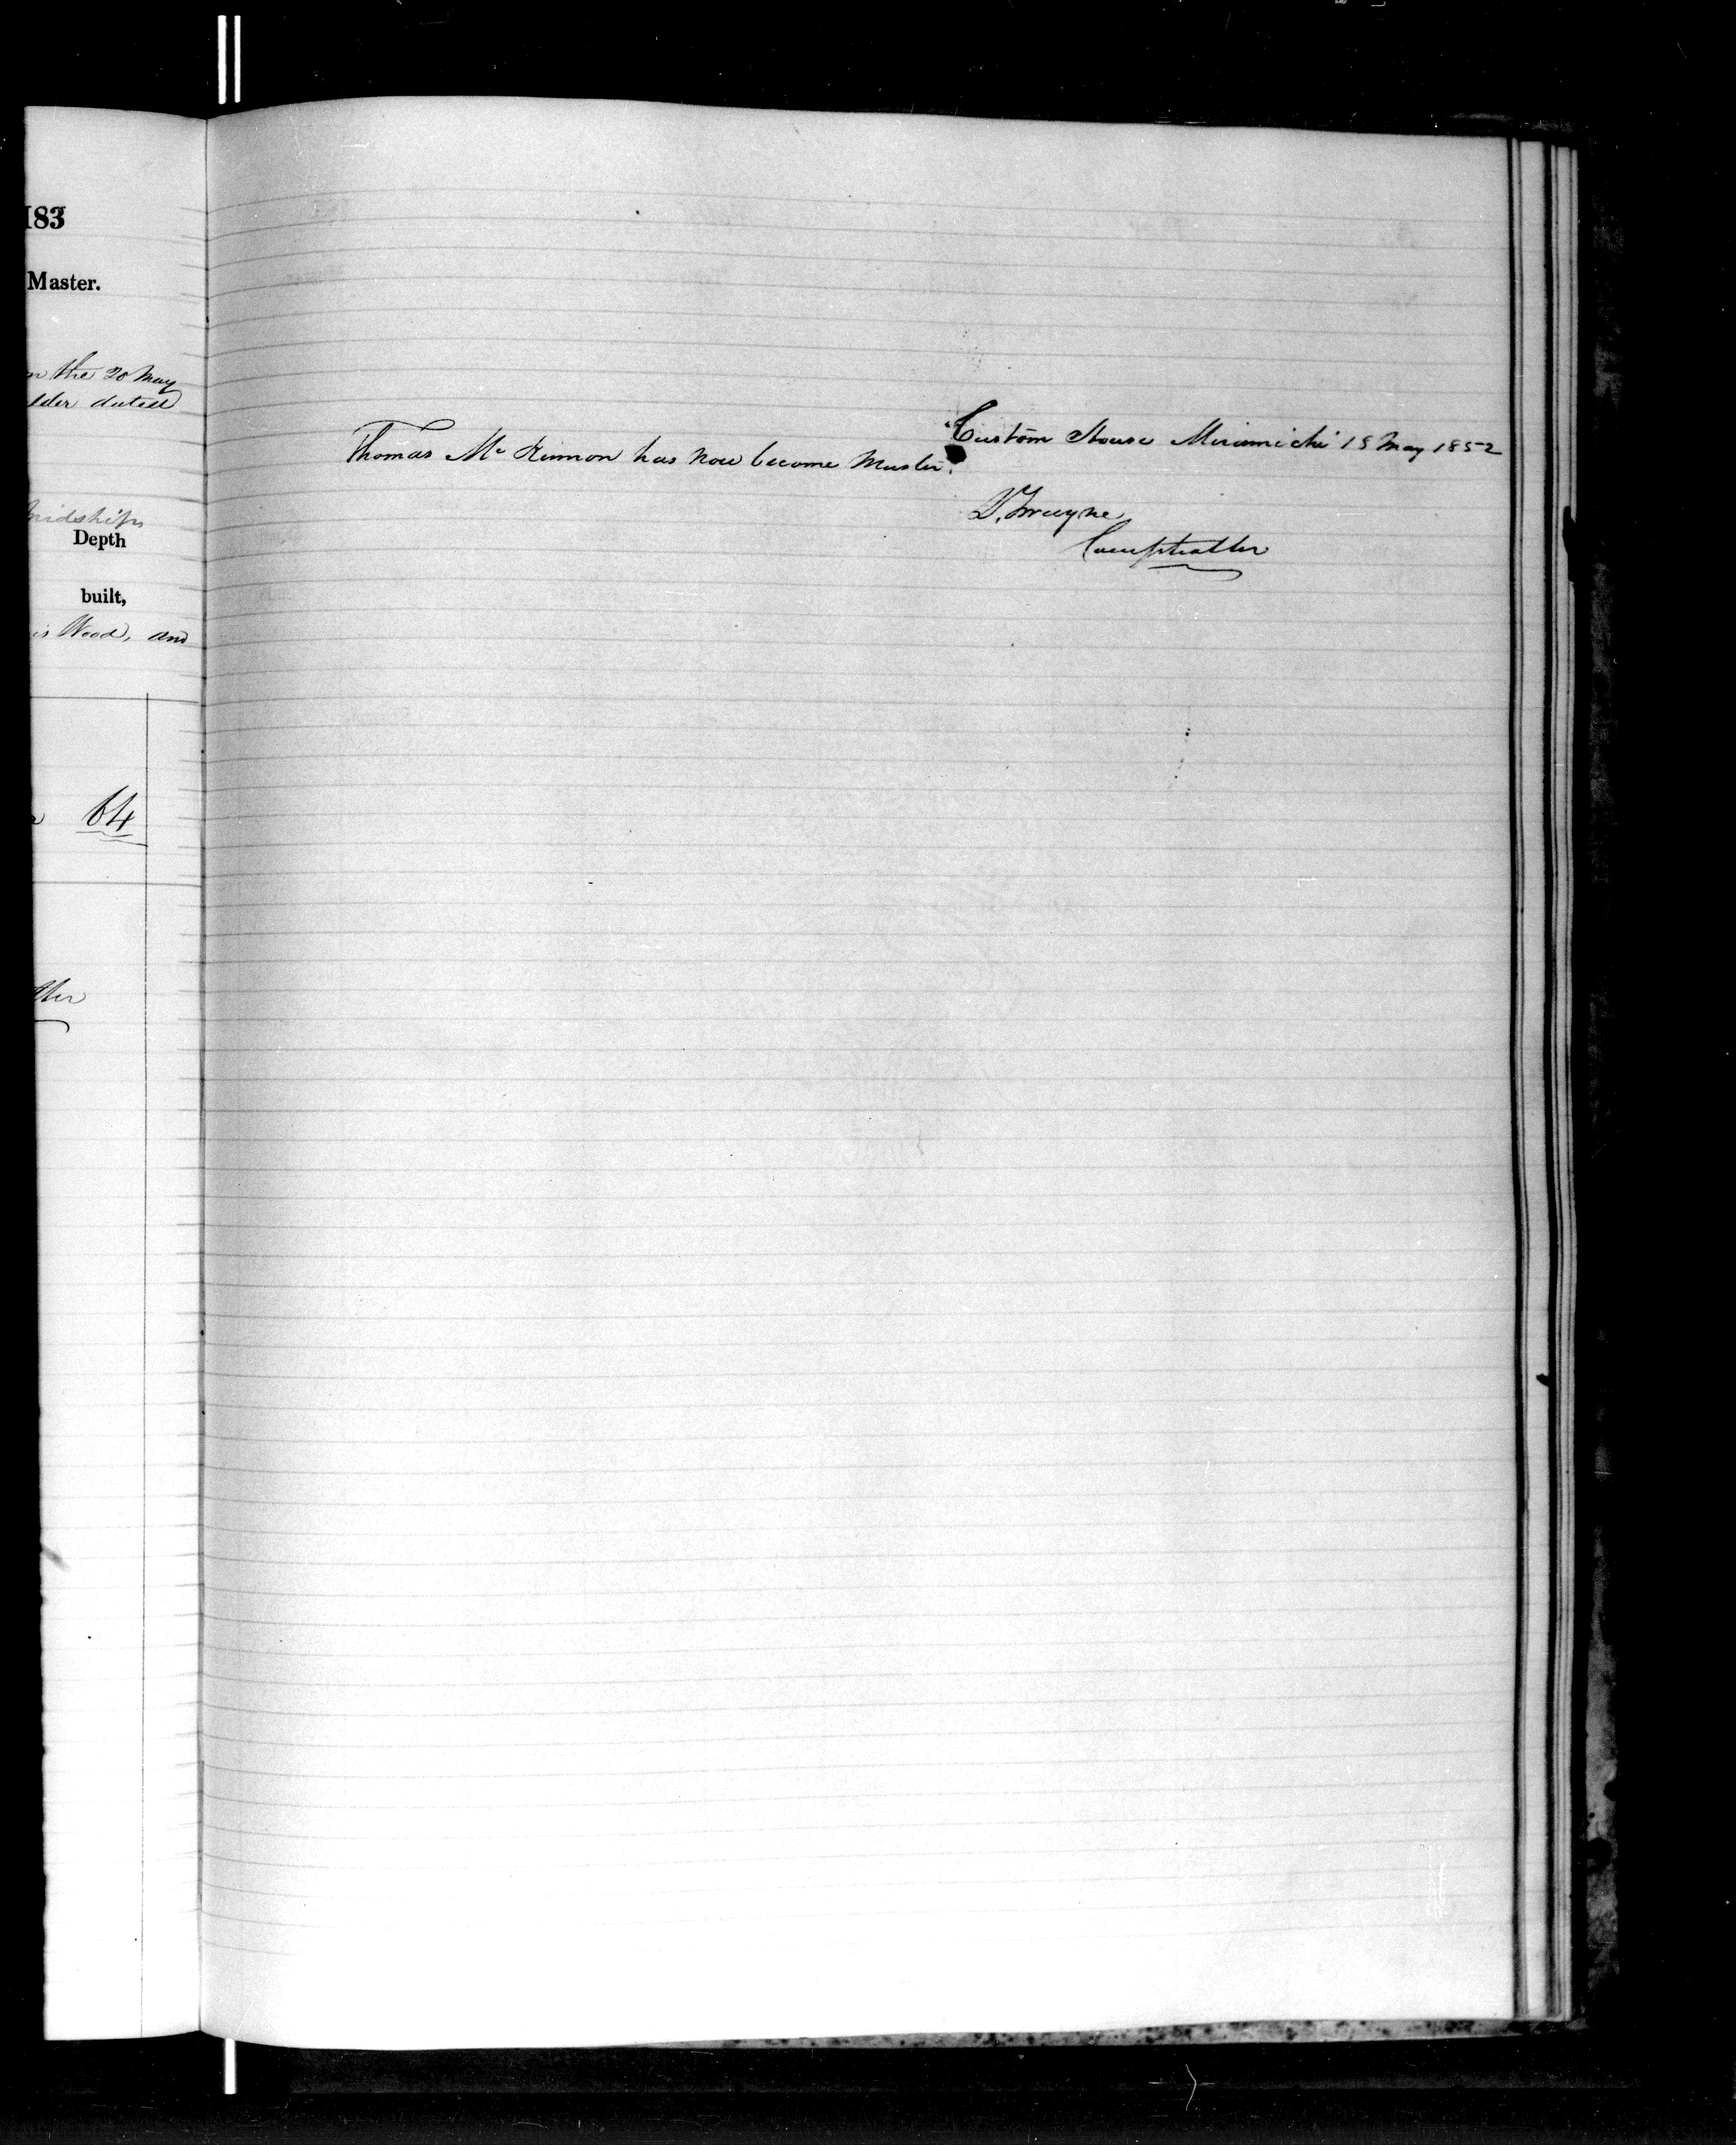 183
Master.
n the 20 May
lder dated
midships
Depth
built,
is Wood, and
64
ller
Custom House Miramichi 18 May 1852
Thomas Mc Kinnon has now become Master.
Comptroller